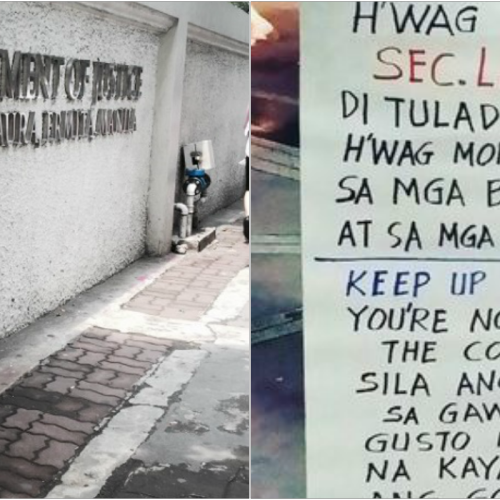 MENT OF JUSTICE
AURA, ERMITA, MANILA
H'WAG
SEC. L
DI TULAD
H'WAG MO
SA MGA
AT SA MGA
KEEP UP
YOU'RE NO
THE CO
SILA AN
SA GAW
GUSTO
NA KAY